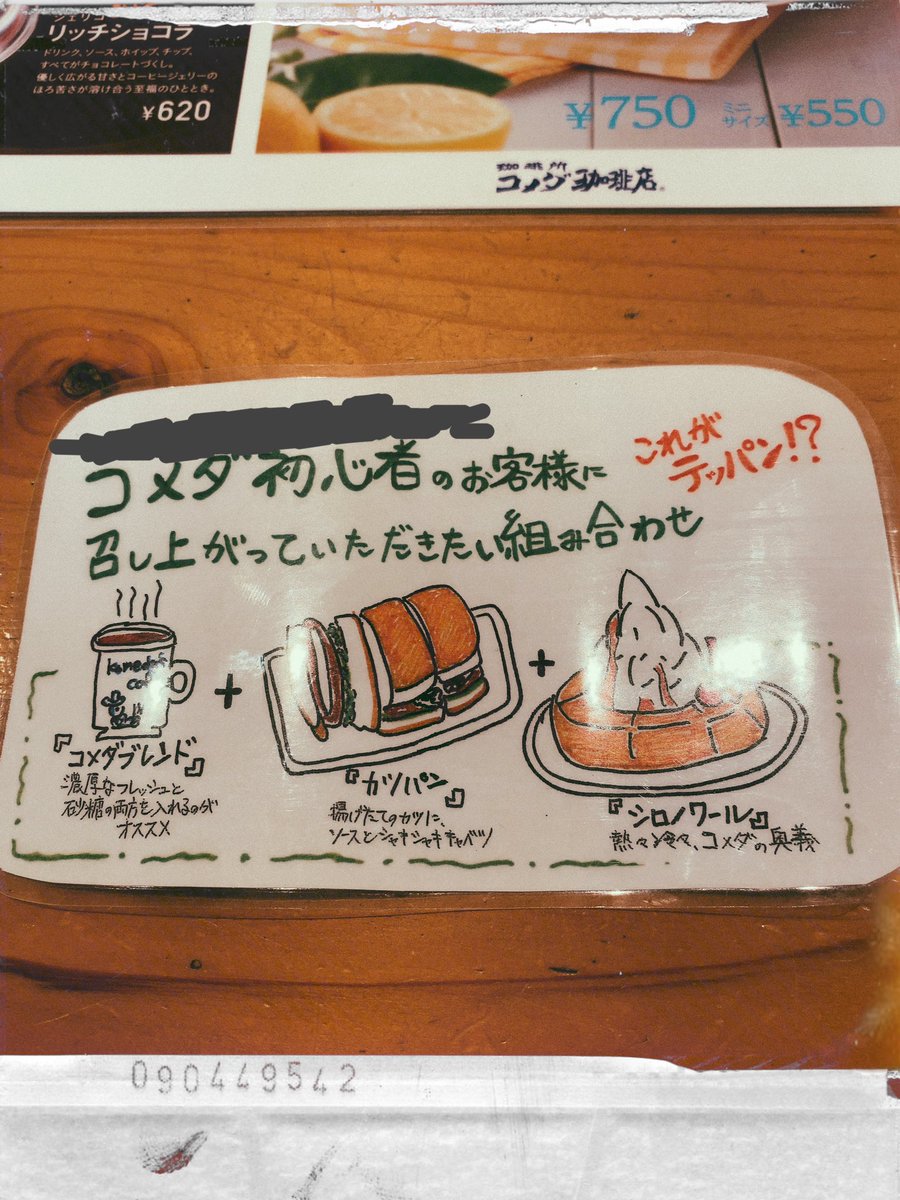 ジェリコ
リッチショコラ
ドリンク、ソース、ホイップ、チップ、
すべてがチョコレートづくし。
優しく広がる甘さとコーヒージェリーの
ほろ苦さが溶け合う至福のひととき。
¥620
¥750 ミニサイズ ¥550
珈琲所
コメダ珈琲店。
コメダ初心者のお客様に
これがテッパン!?
召し上がっていただきたい組み合わせ
komeda's
+
+
『コメダブレンド』
濃厚なフレッシュと
砂糖の両方を入れるのが
オススメ
『カツパン』
揚げたてのカツに、
ソースとシャキシャキキャベツ
『シロノワール』
熱々冷々、コメダの奥義
090449542